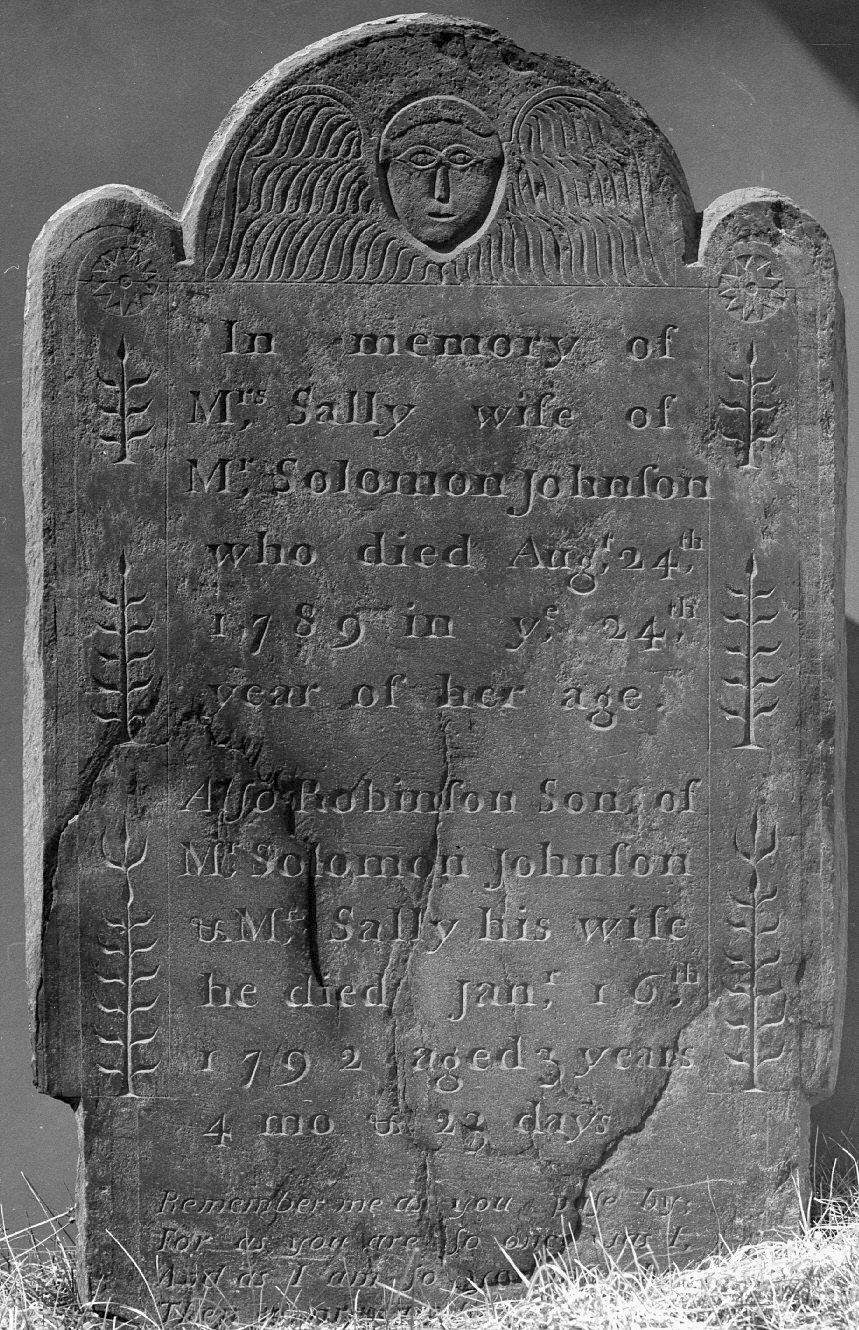 In memory of
Mrs, Sally wiſe of
Mr, Solomon Johnſon
who died Augſt, 24th,
1789 in ye, 24th,
year of her age.
Alſo Robinſon Son, of
Mr. Solomon Johnſon
& Mrs, Sally his wife
he died Janr, 16th,
1792 aged 3 years
4 mo & 23 days
Remember me as you paſs by,
For as you are ſo once was I,
And as I am ſo you
Then